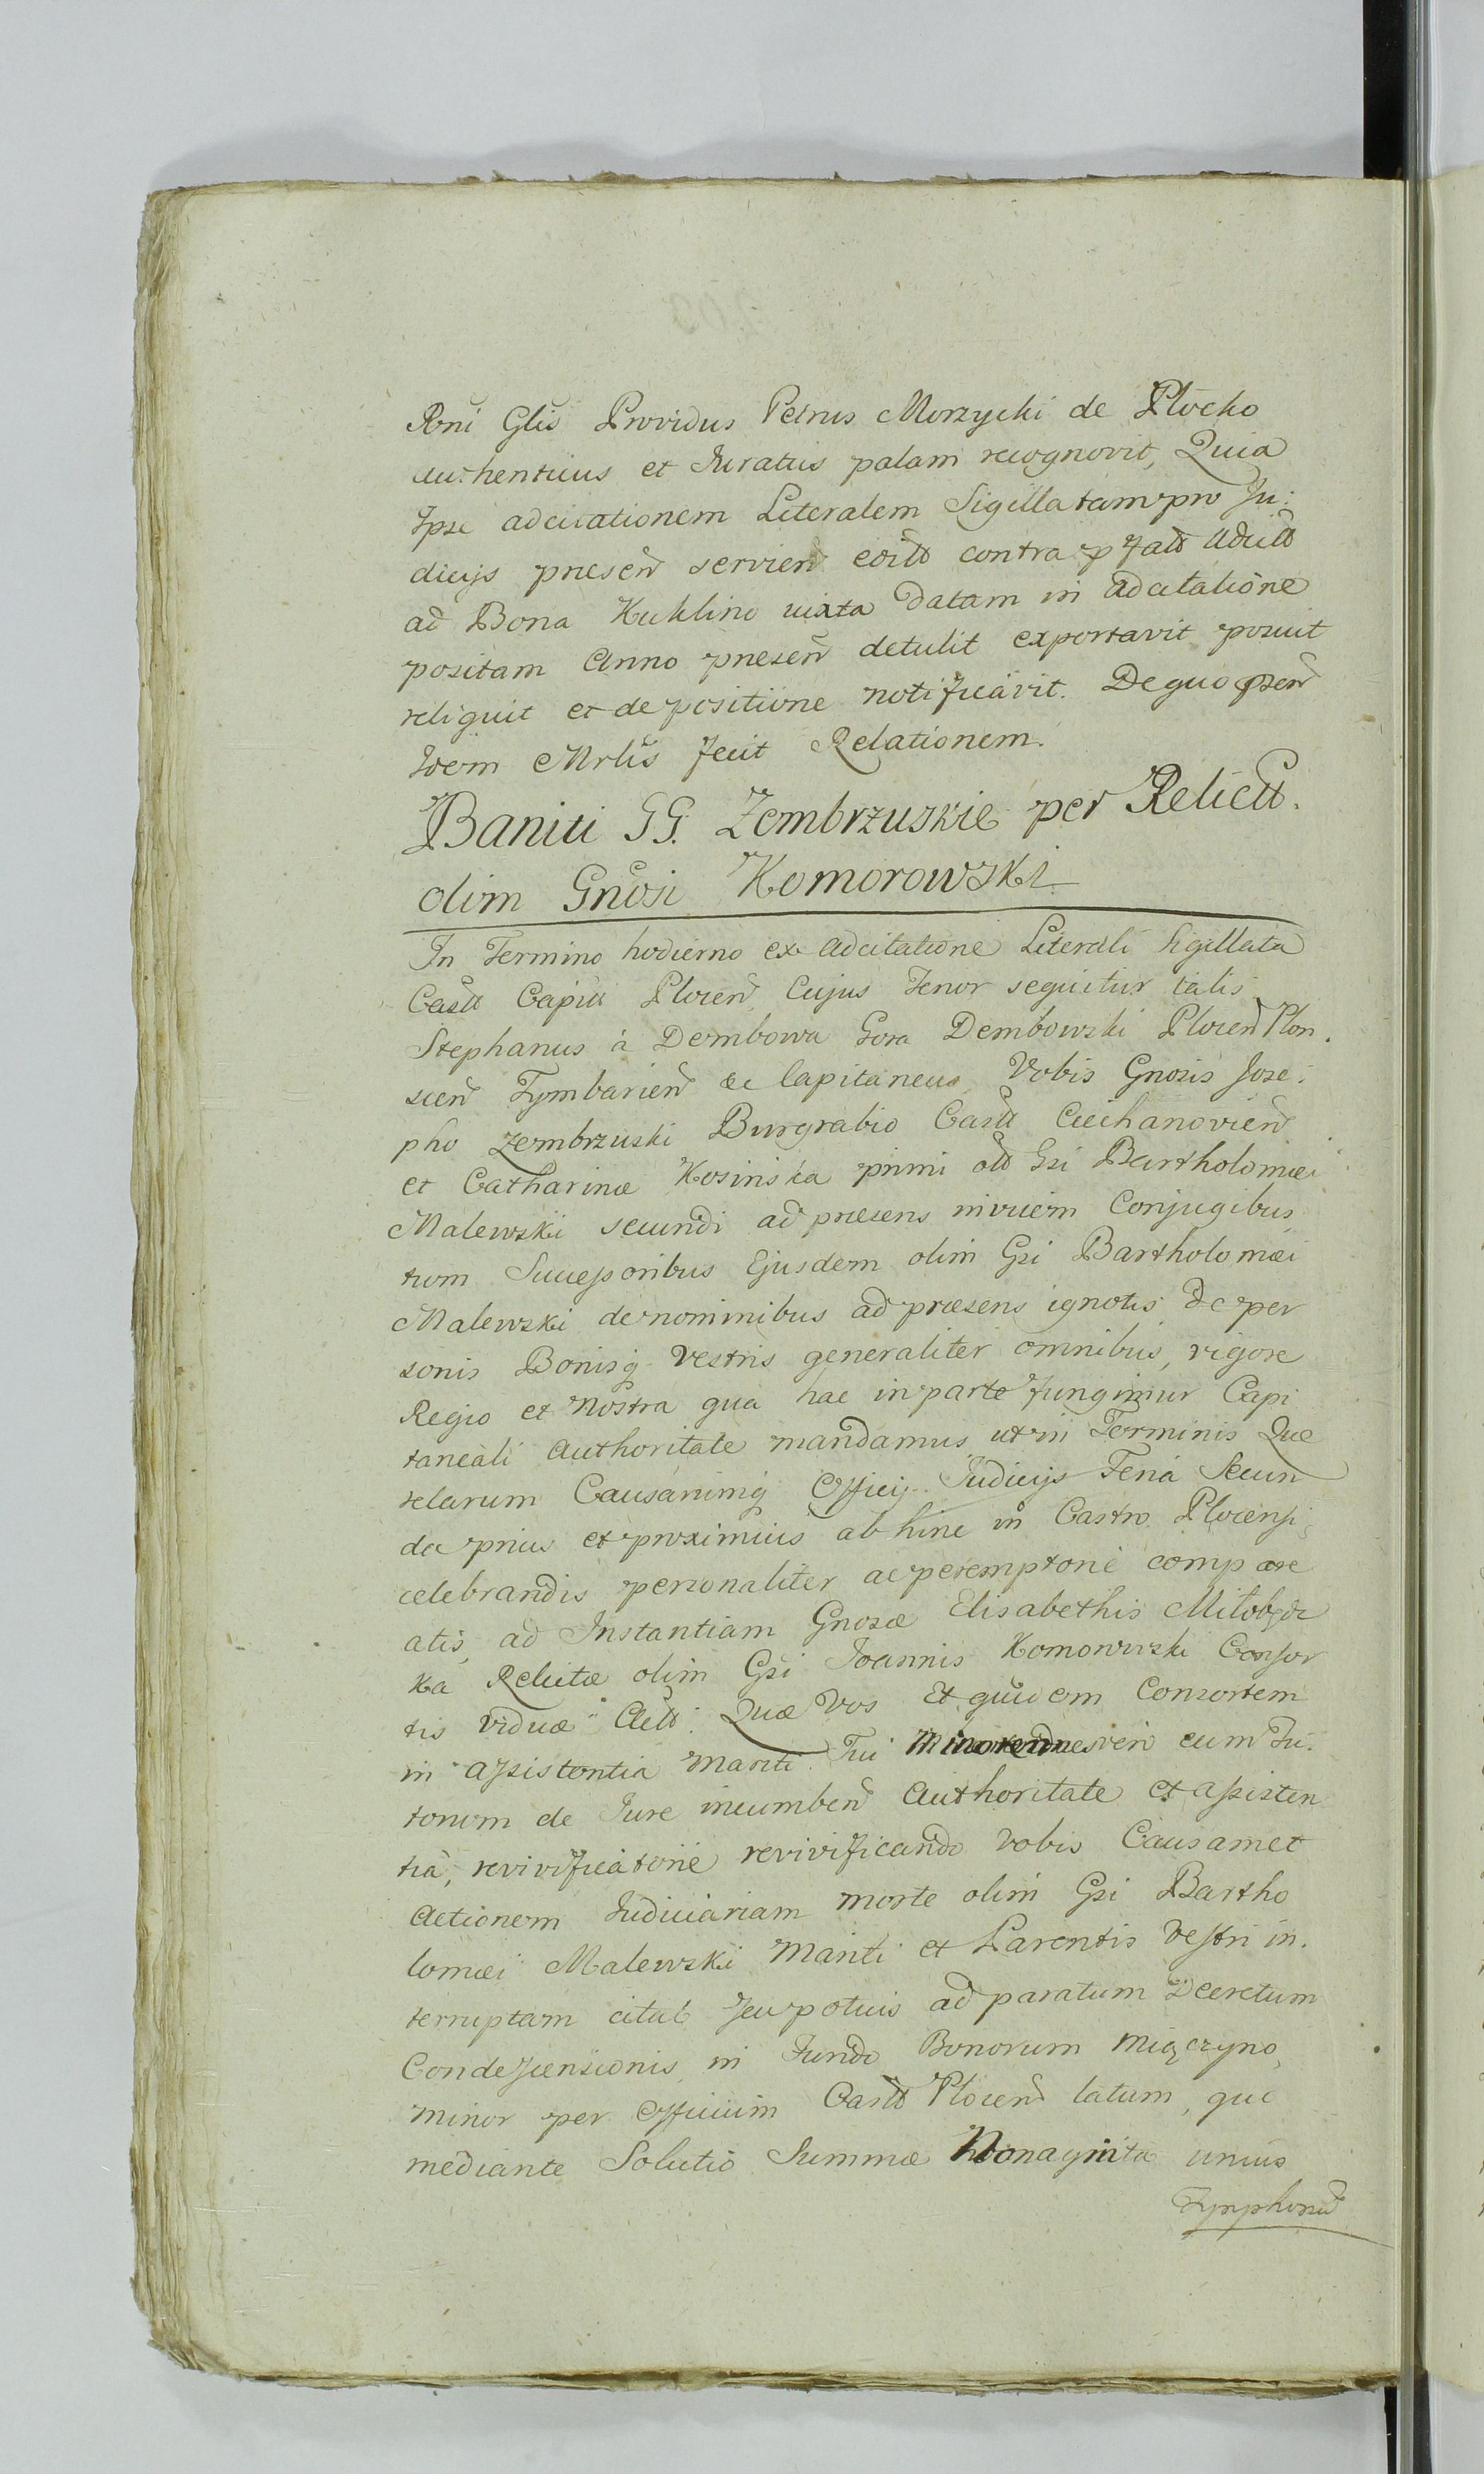 Rni Glis Providus Petrus Morzycki de Płocko
authenticus et Juratus palam recognovit, Quia
Ipse adcitationem Literalem Sigillatam pro Ju:
dicijs præsen servien edit contra pfatt adcitt
ad Bona Kuklino iuxta datam in adcitatione
positam Anno præsen detulit exportavit posuit
reliquit et de positione notificavit. De quo psen
Idem Mrlis fecit Relationem.
Baniti GG. Zembrzuskie per Relictt.
olim Gnosi Komorowski
In Termino hodierno ex adcitatione Literali Sigillata
Castt Capitt Plocen, Cujus Tenor sequitur talis
Stephanus à Dembowa Gora Dembowski Plocen Plon.
scen Tymbarien &c Capitaneus Vobis Gnosis Jose:
pho Zembrzuski Burgrabio Castt Ciechanovien
et Catharinæ Kosinska primi ott Gsi Bartholomæi
Malewski secundi ad præsens invicem Conjugibus
tum Successoribus Ejusdem olim Gsi Bartholomæi
Malewski de nominibus ad præsens ignotis De per
sonis Bonisq Vestris generaliter omnibus, vigore
Regio et Nostra qua hac in parte fungimur Capi
taneali Authoritate mandamus ut in Terminis Que
relarum Causarumq Officij Judicijs Feria Secun
da prius et proximius ab hinc in Castro Plocensi
celebrandis personaliter ac peremptorie compare
atis, ad Instantiam Gnosæ Elisabethis Miłobędz
ka Relictæ olim Gsi Joannis Komorowski Consor
tis viduæ Actt. Quæ Vos Et quidem Consortem
in assistentia Mariti Tui cum Tu.
torum de Jure incumben Authoritate et assisten
tia, revivificatorie revivificando vobis Causam et
Actionem Judiciariam morte olim Gsi Bartho
lomæi Malewski Mariti et Parentis Vestri in.
terruptam citat seu potius ad paratum Decretum
Condescensionis in Fundo Bonorum Mięczyno
minor per Officium Castt Plocen latum, quo
mediante Solutio Summæ Nonaginta unius
Tynphonu